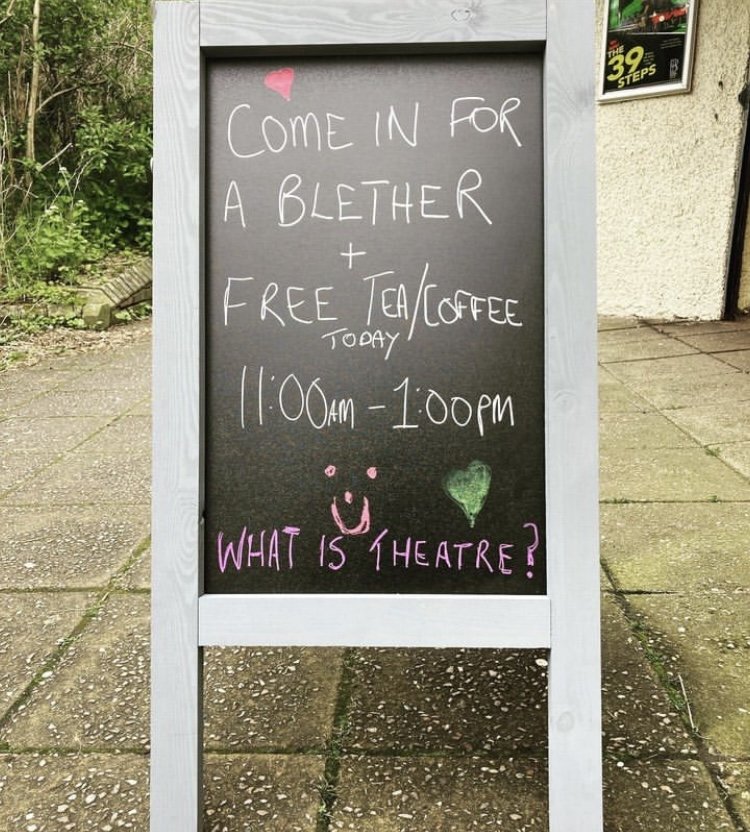 COME IN FOR
A BLETHER
+
FREE TEA/COFFEE
TODAY
11:00AM - 1:00PM
WHAT IS THEATRE?
THE
39
STEPS